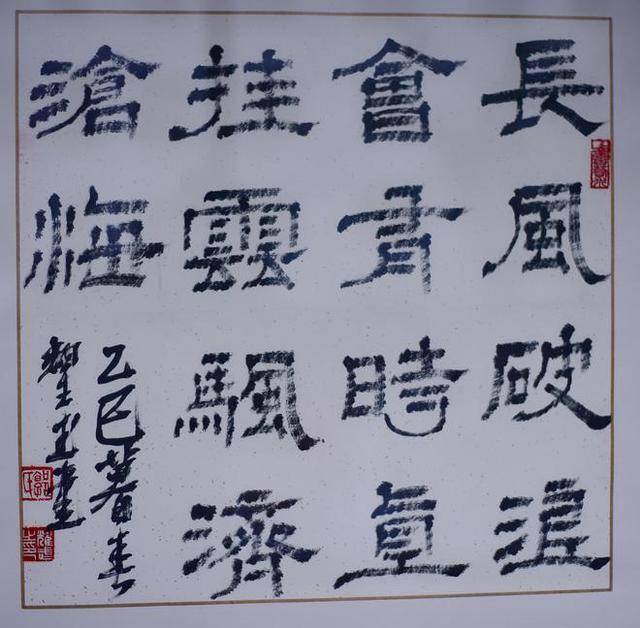 長風破浪
會有時直
挂雲颿濟
滄海
乙巳暮春